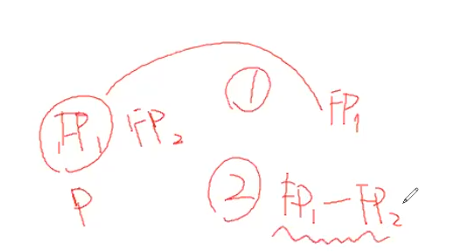 ①
FP₁ FP₂ FP₁
P ② FP₁ — FP₂